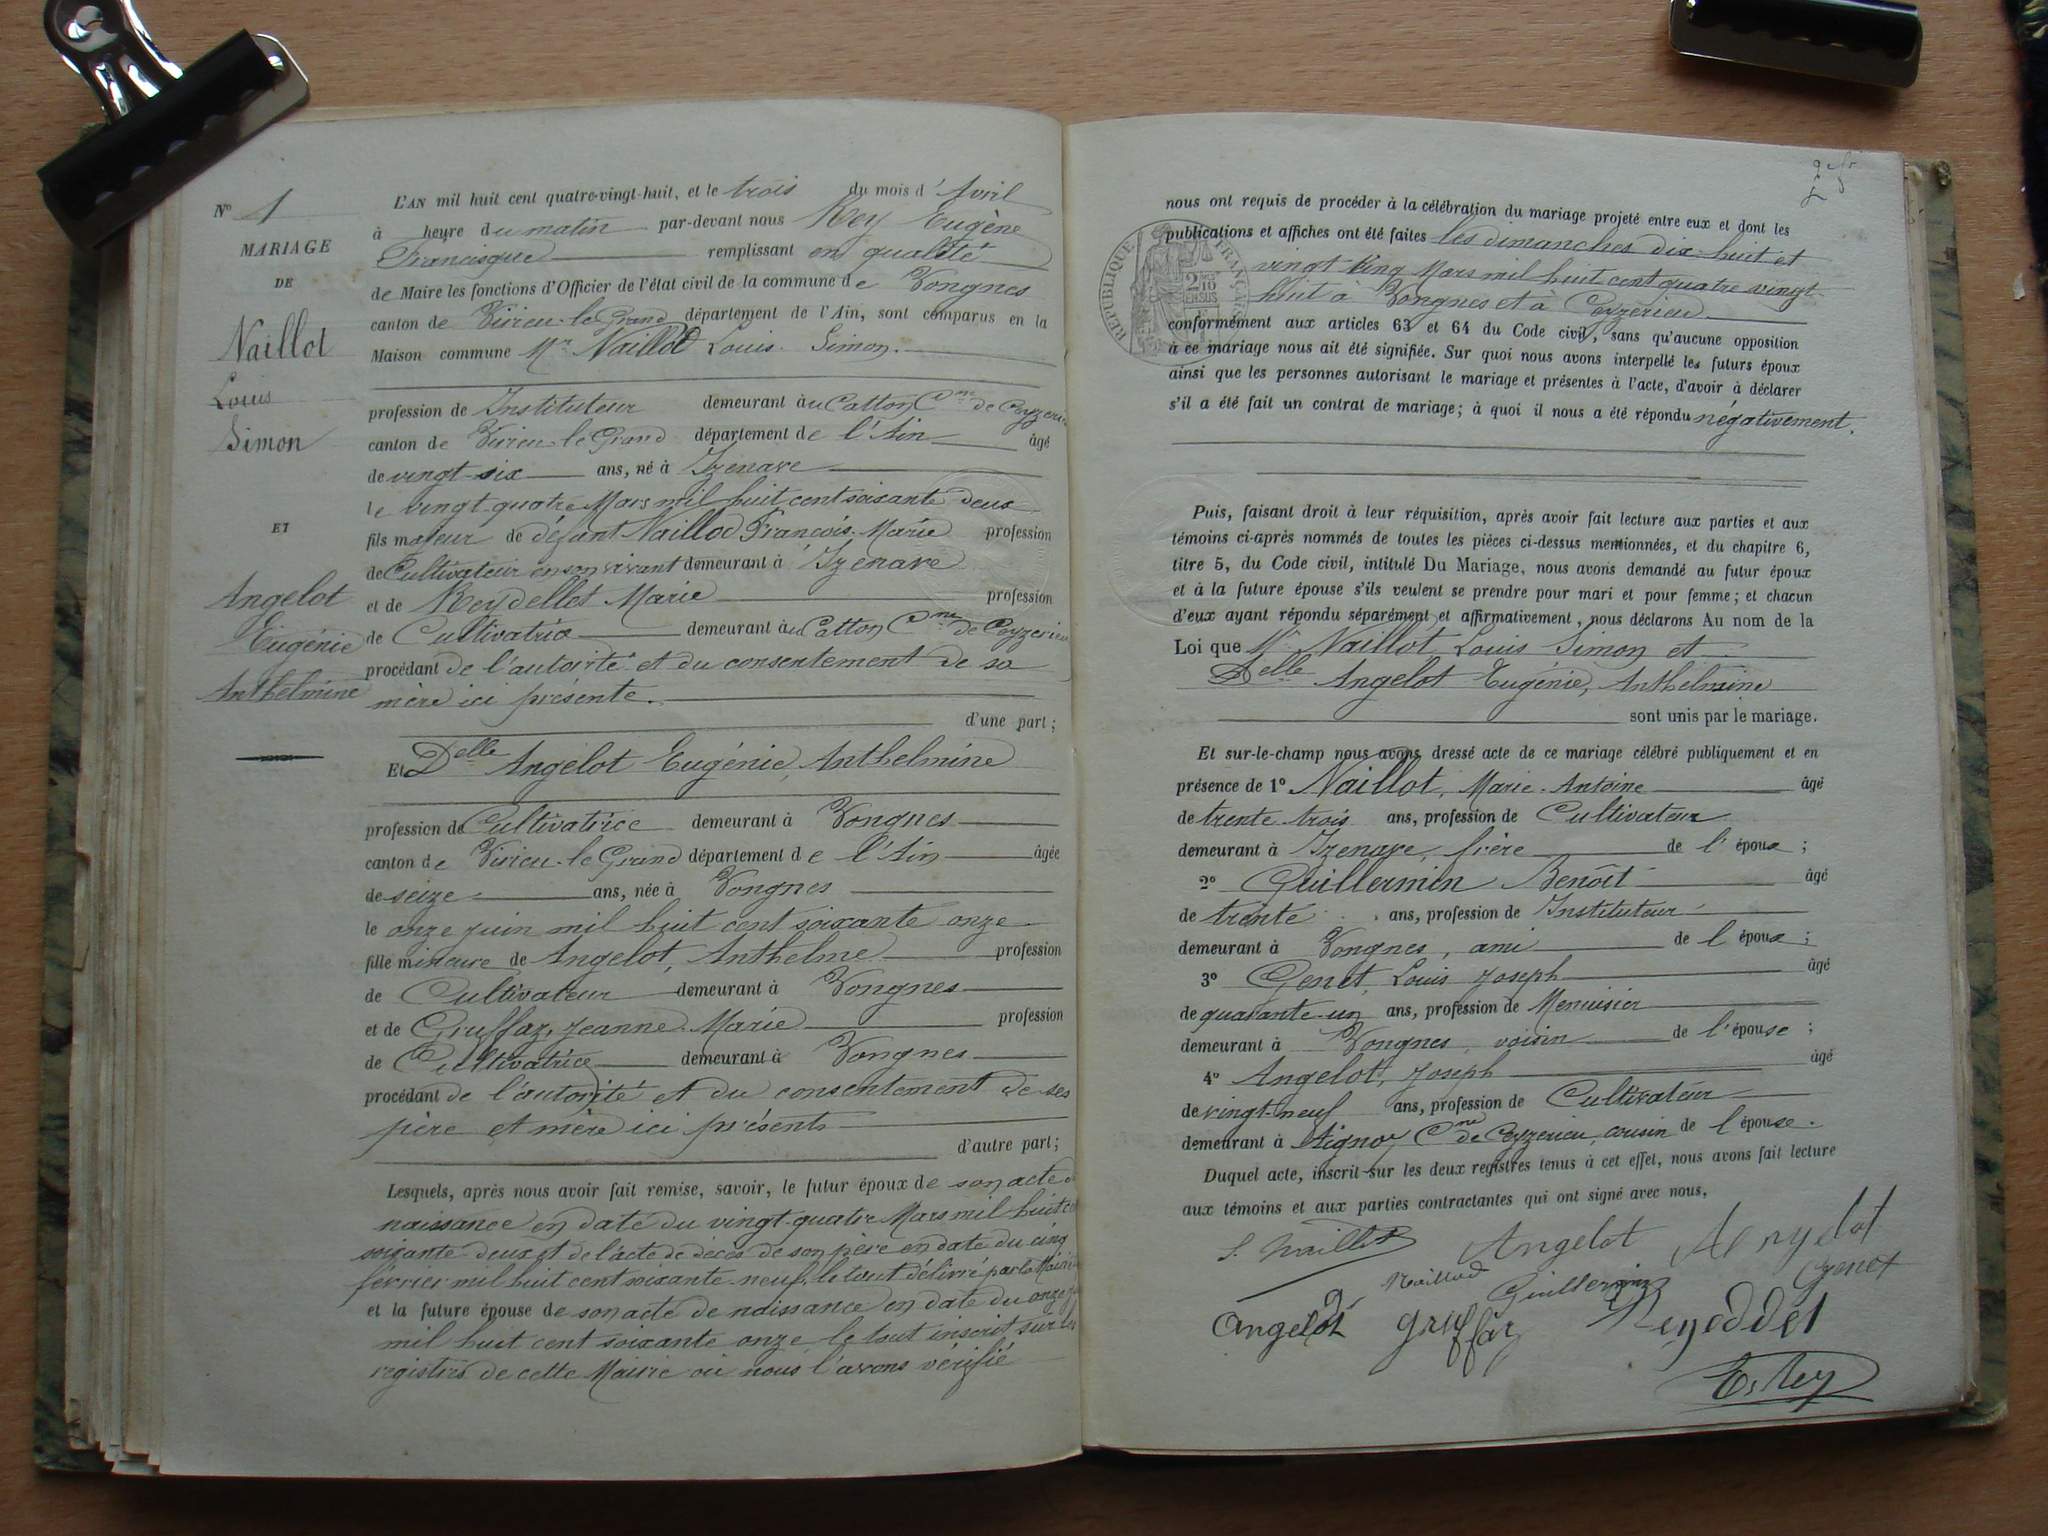 N° 1
MARIAGE
DE
Naillot
Louis
Simon
ET
Angelot
Eugénie
Anthelmine
L'AN mil huit cent quatre-vingt-huit, et le trois du mois d'Avril
à heure du matin par-devant nous Rey Eugène
Francisque remplissant en qualité
de Maire les fonctions d'Officier de l'état civil de la commune de Vongnes
canton de Virieu-le-Grand département de l'Ain, sont comparus en la
Maison commune Mr Naillod Louis Simon.
profession de Instituteur demeurant à au Catton Cne de Ceyzerieu
canton de Virieu-le-Grand département de l'Ain âgé
de vingt-six ans, né à Izenave
le vingt-quatre Mars mil huit cent soixante deux
fils majeur de défunt Naillod François-Marie profession
de Cultivateur en son vivant demeurant à Izenave
et de Reydellet Marie profession
de Cultivatrice demeurant à au Catton Cne de Ceyzerieu
procédant de l'autorité et du consentement de sa
mère ici présente.
d'une part;
Et Delle Angelot Eugénie, Anthelmine
profession de Cultivatrice demeurant à Vongnes
canton de Virieu-le-Grand département de l'Ain âgée
de seize ans, née à Vongnes
le onze juin mil huit cent soixante onze
fille mineure de Angelot, Anthelme profession
de Cultivateur demeurant à Vongnes
et de Gruffaz, Jeanne-Marie profession
de Cultivatrice demeurant à Vongnes
procédant de l'autorité et du consentement de ses
père et mère ici présents
d'autre part;
Lesquels, après nous avoir fait remise, savoir, le futur époux de son acte de
naissance en date du vingt-quatre Mars mil huit cent
soixante-deux et de l'acte de décès de son père en date du cinq
février mil huit cent soixante-neuf, le tout délivré par la Mairie
et la future épouse de son acte de naissance en date du onze
mil huit cent soixante onze, le tout inscrit sur les
registres de cette Mairie où nous l'avons vérifié
nous ont requis de procéder à la célébration du mariage projeté entre eux et dont les
publications et affiches ont été faites les dimanches dix-huit et
vingt cinq Mars mil huit cent quatre vingt
huit à Vongnes et à Ceyzerieu
conformément aux articles 63 et 64 du Code civil, sans qu'aucune opposition
à ce mariage nous ait été signifiée. Sur quoi nous avons interpellé les futurs époux
ainsi que les personnes autorisant le mariage et présentes à l'acte, d'avoir à déclarer
s'il a été fait un contrat de mariage; à quoi il nous a été répondu négativement.
RÉPUBLIQUE FRANÇAISE
2/10 EN SUS
Puis, faisant droit à leur réquisition, après avoir fait lecture aux parties et aux
témoins ci-après nommés de toutes les pièces ci-dessus mentionnées, et du chapitre 6,
titre 5, du Code civil, intitulé Du Mariage, nous avons demandé au futur époux
et à la future épouse s'ils veulent se prendre pour mari et pour femme; et chacun
d'eux ayant répondu séparément et affirmativement, nous déclarons Au nom de la
Loi que Mr Naillot Louis Simon et
Delle Angelot Eugénie, Anthelmine
sont unis par le mariage.
Et sur-le-champ nous avons dressé acte de ce mariage célébré publiquement et en
présence de 1° Naillot, Marie-Antoine âgé
de trente-trois ans, profession de Cultivateur
demeurant à Izenave, frère de l'époux;
2° Guillermin Benoît âgé
de trente ans, profession de Instituteur
demeurant à Vongnes, ami de l'époux;
3° Genet, Louis Joseph âgé
de quarante-un ans, profession de Menuisier
demeurant à Vongnes, voisin de l'épouse;
4° Angelot, Joseph âgé
de vingt-neuf ans, profession de Cultivateur
demeurant à Aignoz Cne de Ceyzerieu, cousin de l'épouse.
Duquel acte, inscrit sur les deux registres tenus à cet effet, nous avons fait lecture
aux témoins et aux parties contractantes qui ont signé avec nous,
S. Naillot Angelot
Naillod Guillermin Genet
Angelot Gruffaz
E. Rey